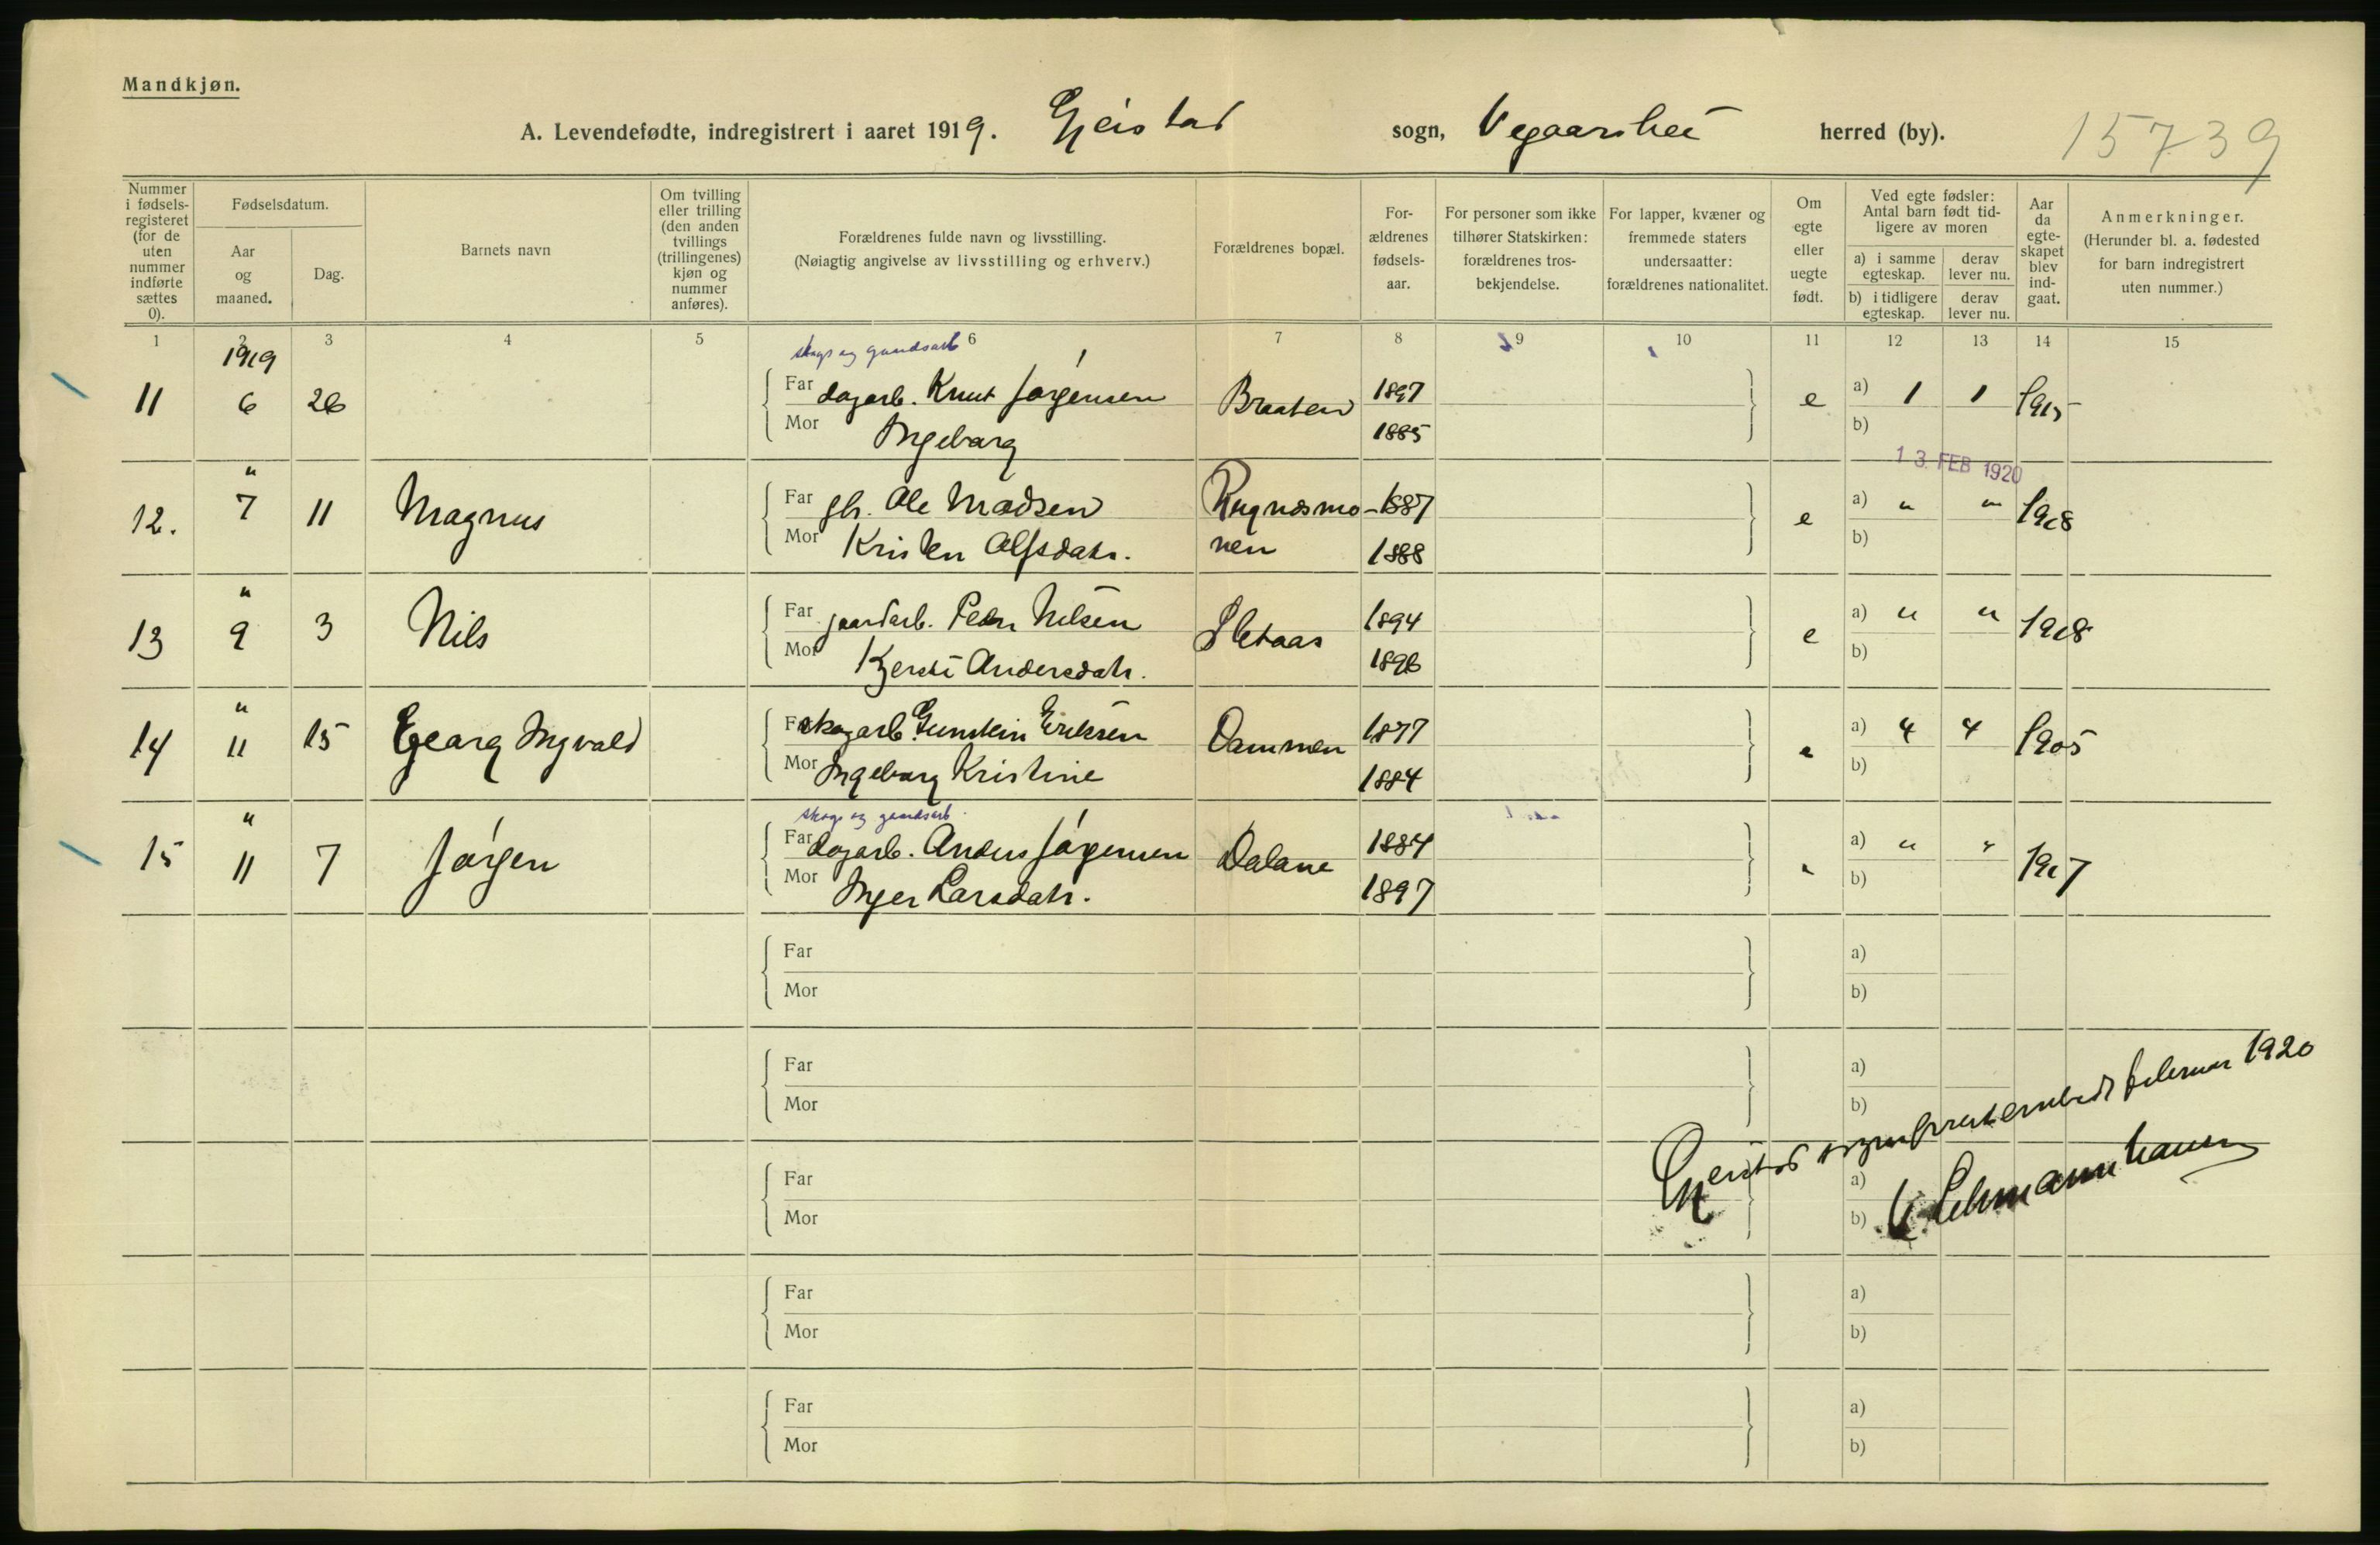 Mandkjøn.
A. Levendefødte, indregistrert i aaret 1919. Gjerstad sogn, Vegaarshei herred (by). 15739
Nummer i fødsels-registeret (for de uten nummer indførte sættes 0).
Fødselsdatum.
Aar og maaned.
Dag.
Barnets navn
Om tvilling eller trilling (den anden tvillings (trillingenes) kjøn og nummer anføres).
Forældrenes fulde navn og livsstilling.
(Nøiagtig angivelse av livsstilling og erhverv.)
Forældrenes bopæl.
For-ældrenes fødsels-aar.
For personer som ikke tilhører Statskirken: forældrenes tros-bekjendelse.
For lapper, kvæner og fremmede staters undersaatter: forældrenes nationalitet.
Om egte eller uegte født.
Ved egte fødsler: Antal barn født tid-ligere av moren
a) i samme egteskap. derav lever nu.
b) i tidligere egteskap. derav lever nu.
Aar da egte-skapet blev ind-gaat.
Anmerkninger.
(Herunder bl. a. fødested for barn indregistrert uten nummer.)
1 2 3 4 5 6 7 8 9 10 11 12 13 14 15
1919 skogs og gaardsarb
11 6 26 Far dagarb. Knut Jørgensen Braaten 1897 e a) 1 1 1915
Mor Ingeborg 1885 b)
13. FEB 1920
12. " 7 11 Magnus Far gbr. Ole Madsen 1887 e a) " " 1918
Mor Kristen Alfsdatr. nen 1888 b)
13 " 9 3 Nils Far gaardarb. Peder Nilsen Sletaas 1894 e a) " " 1918
Mor Kjersti Andersdatr. 1896 b)
14 " 11 15 Georg Ingvald Far skogarb Gunstein Eriksen Dammen 1877 e a) 4 4 1905
Mor Ingeborg Kristine 1884 b)
skogs og gaardsarb
15 " 11 7 Jørgen Far dagarb. Anders Jørgensen Dalane 1884 " a) " " 1917
Mor Inger Larsdatr. 1897 b)
Far a)
Mor b)
Far a)
Mor b)
Gjerstad sogneprestembede februar 1920
Far a)
Mor b)
V Lehmann hansen
Far a)
Mor b)
Far a)
Mor b)